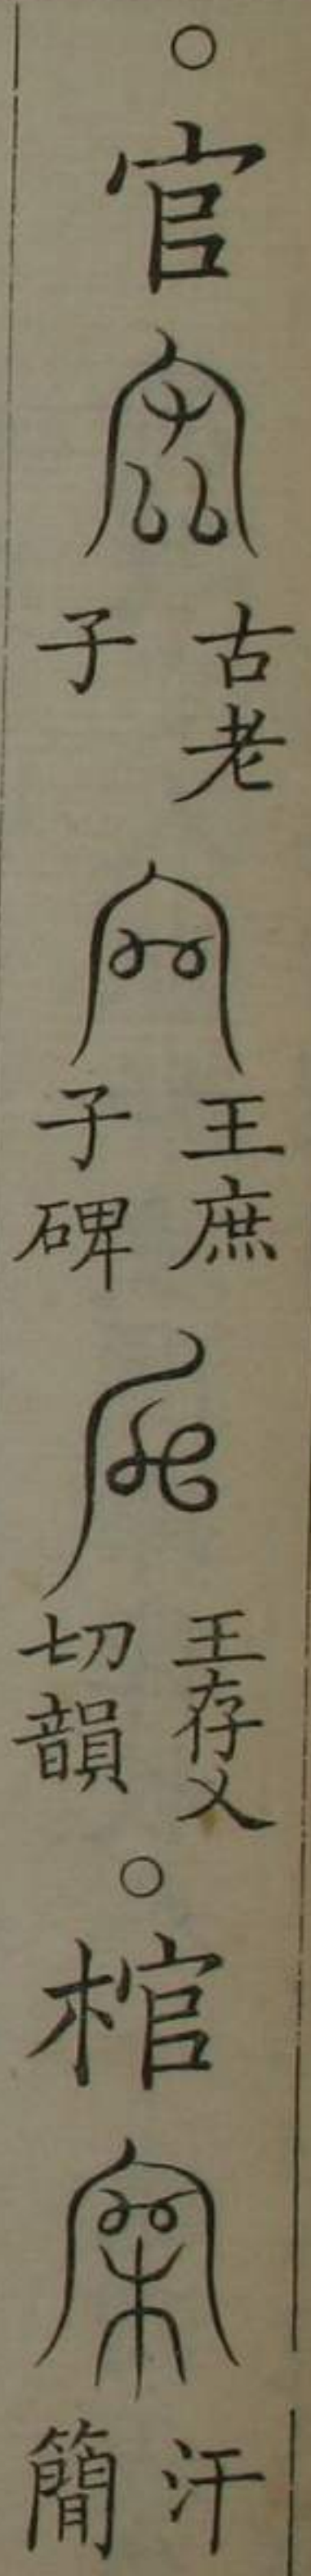 ○官
古老
子
王庶
子碑
王存乂
切韻
○棺
汗
簡